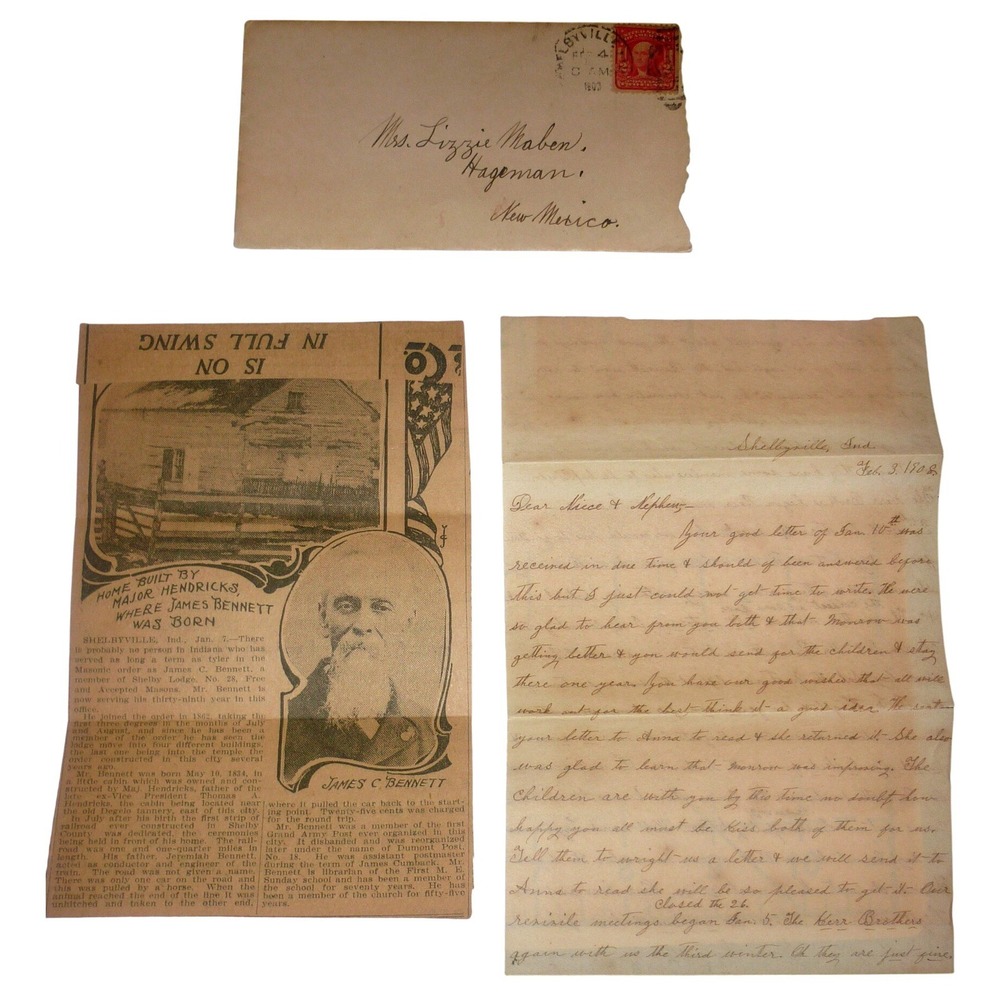 SHELBYVILLE
4
AM
Mrs. Lizzie Maben.
Hageman.
New Mexico.
IN FULL SWING
IS ON
HOME BUILT BY
MAJOR HENDRICKS,
WHERE JAMES BENNETT
WAS BORN
SHELBYVILLE, Ind., Jan. 7.—There
is probably no person in Indiana who has
served as long a term as tyler in the
Masonic order as James C. Bennett, a
member of Shelby Lodge, No. 28, Free
and Accepted Masons. Mr. Bennett is
now serving his thirty-ninth year in this
office.
He joined the order in 1862, taking the
first three degrees in the months of July
and August, and since he has been a
member of the order he has seen the
lodge move into four different buildings,
the last one being into the temple the
order constructed in this city several
years ago.
Mr. Bennett was born May 10, 1834, in
a little cabin which was owned and con-
structed by Maj. Hendricks, father of the
late ex-Vice President Thomas A.
Hendricks, the cabin being located near
the old Degelo tannery, east of this city.
In July after his birth the first strip of
railroad ever constructed in Shelby
County was dedicated, the ceremonies
being held in front of his home. The rail-
road was one and one-quarter miles in
length. His father, Jeremiah Bennett,
acted as conductor and engineer of the
train. The road was not given a name.
There was only one car on the road and
this was pulled by a horse. When the
animal reached the end of the line it was
unhitched and taken to the other end,
JAMES C. BENNETT
where it pulled the car back to the start-
ing point. Twenty-five cents was charged
for the round trip.
Mr. Bennett was a member of the first
Grand Army Post ever organized in this
city. It disbanded and was reorganized
later under the name of Dumont Post,
No. 18. He was assistant postmaster
during the term of James Cumback. Mr.
Bennett is librarian of the First M. E.
Sunday school and has been a member of
the school for seventy years. He has
been a member of the church for fifty-five
years.
Shelbyville, Ind.
Feb. 3. 1908
Dear Niece & Nephew—
Your good letter of Jan. 10th was
received in due time & should of been answered before
this but I just could not get time to write. We were
so glad to hear from you both & that Monrow was
getting better & you would send for the children & stay
there one year. You have our good wishes that all will
work out for the best think it a good idea. We sent
your letter to Anna to read & she returned it. She also
was glad to learn that Monrow was improving. The
children are with you by this time no doubt, how
happy you all must be. Kiss both of them for us.
Tell them to wright us a letter & we will send it to
Anna to read she will be so pleased to get it. Our
Closed the 26.
revivile meetings began Jan. 5. The Kerr Brothers
again with us the third winter. Oh they are just fine.